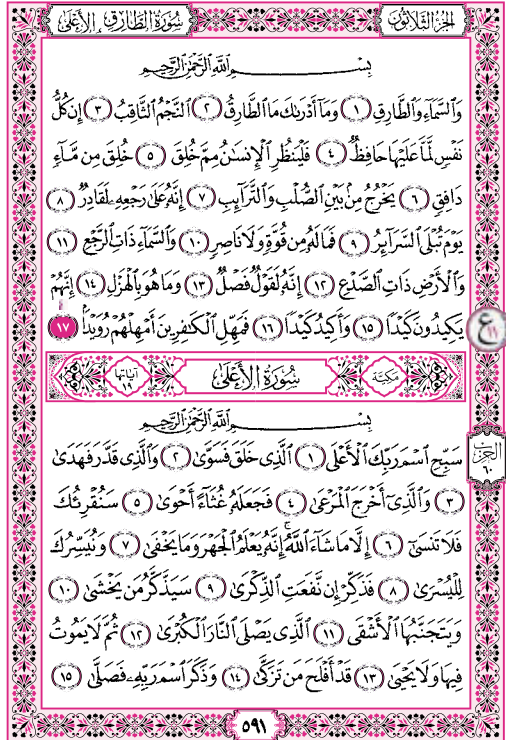 سُورَةُ الطَّارِقِ ـ الأَعْلَى
الجُزْءُ الثَّلَاثُونَ
بِسْمِ ٱللَّهِ ٱلرَّحْمَٰنِ ٱلرَّحِيمِ
وَٱلسَّمَآءِ وَٱلطَّارِقِ ١ وَمَآ أَدْرَىٰكَ مَا ٱلطَّارِقُ ٢ ٱلنَّجْمُ ٱلثَّاقِبُ ٣ إِن كُلُّ
نَفْسٍ لَّمَّا عَلَيْهَا حَافِظٌ ٤ فَلْيَنظُرِ ٱلْإِنسَٰنُ مِمَّ خُلِقَ ٥ خُلِقَ مِن مَّآءٍ
دَافِقٍ ٦ يَخْرُجُ مِنۢ بَيْنِ ٱلصُّلْبِ وَٱلتَّرَآئِبِ ٧ إِنَّهُۥ عَلَىٰ رَجْعِهِۦ لَقَادِرٌ ٨
يَوْمَ تُبْلَى ٱلسَّرَآئِرُ ٩ فَمَا لَهُۥ مِن قُوَّةٍ وَلَا نَاصِرٍ ١٠ وَٱلسَّمَآءِ ذَاتِ ٱلرَّجْعِ ١١
وَٱلْأَرْضِ ذَاتِ ٱلصَّدْعِ ١٢ إِنَّهُۥ لَقَوْلٌ فَصْلٌ ١٣ وَمَا هُوَ بِٱلْهَزْلِ ١٤ إِنَّهُمْ
يَكِيدُونَ كَيْدًا ١٥ وَأَكِيدُ كَيْدًا ١٦ فَمَهِّلِ ٱلْكَٰفِرِينَ أَمْهِلْهُمْ رُوَيْدًۢا ١٧
مَكِيَّة
سُورَةُ الأَعْلَىٰ
آيَاتُهَا ١٩
بِسْمِ ٱللَّهِ ٱلرَّحْمَٰنِ ٱلرَّحِيمِ
سَبِّحِ ٱسْمَ رَبِّكَ ٱلْأَعْلَى ١ ٱلَّذِى خَلَقَ فَسَوَّىٰ ٢ وَٱلَّذِى قَدَّرَ فَهَدَىٰ
٣ وَٱلَّذِىٓ أَخْرَجَ ٱلْمَرْعَىٰ ٤ فَجَعَلَهُۥ غُثَآءً أَحْوَىٰ ٥ سَنُقْرِئُكَ
فَلَا تَنسَىٰٓ ٦ إِلَّا مَا شَآءَ ٱللَّهُ ۚ إِنَّهُۥ يَعْلَمُ ٱلْجَهْرَ وَمَا يَخْفَىٰ ٧ وَنُيَسِّرُكَ
لِلْيُسْرَىٰ ٨ فَذَكِّرْ إِن نَّفَعَتِ ٱلذِّكْرَىٰ ٩ سَيَذَّكَّرُ مَن يَخْشَىٰ ١٠
وَيَتَجَنَّبُهَا ٱلْأَشْقَى ١١ ٱلَّذِى يَصْلَى ٱلنَّارَ ٱلْكُبْرَىٰ ١٢ ثُمَّ لَا يَمُوتُ
فِيهَا وَلَا يَحْيَىٰ ١٣ قَدْ أَفْلَحَ مَن تَزَكَّىٰ ١٤ وَذَكَرَ ٱسْمَ رَبِّهِۦ فَصَلَّىٰ ١٥
ع
١١
الحزب
٦٠
٥٩١